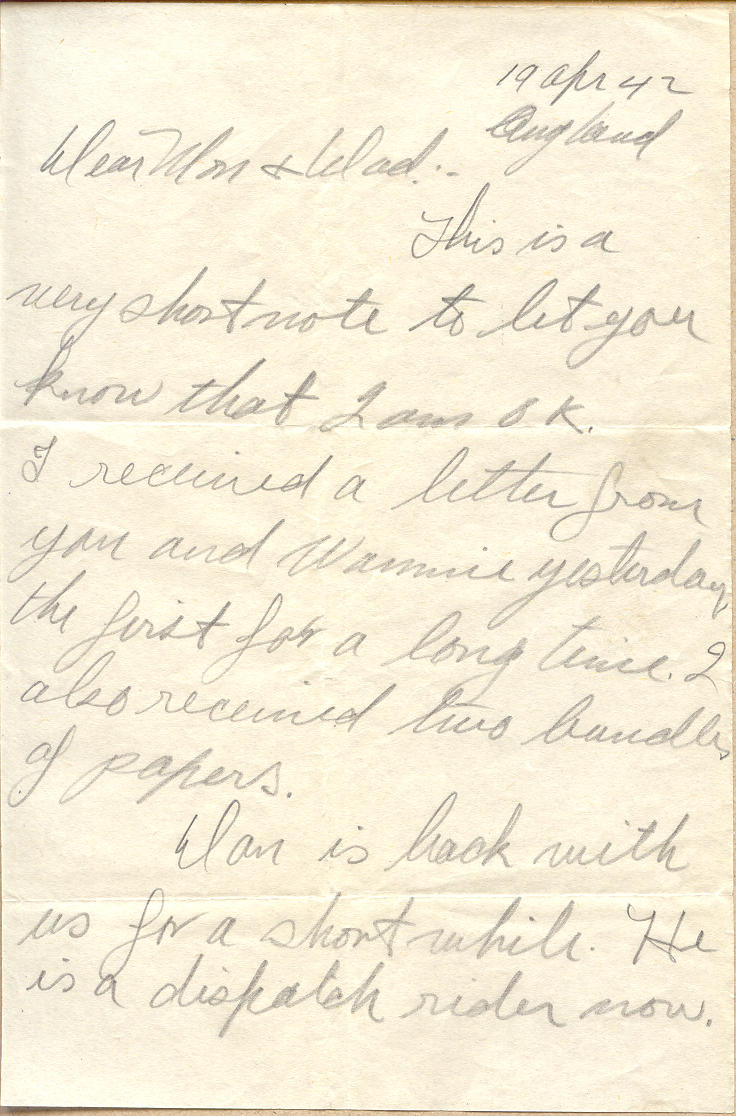 19 Apr 42
England
Dear Mom & Dad:-
This is a
very short note to let you
know that I am OK.
I received a letter from
you and Wannie yesterday,
the first for a long time. I
also received two bundles
of papers.
Don is back with
us for a short while. He
is a dispatch rider now.